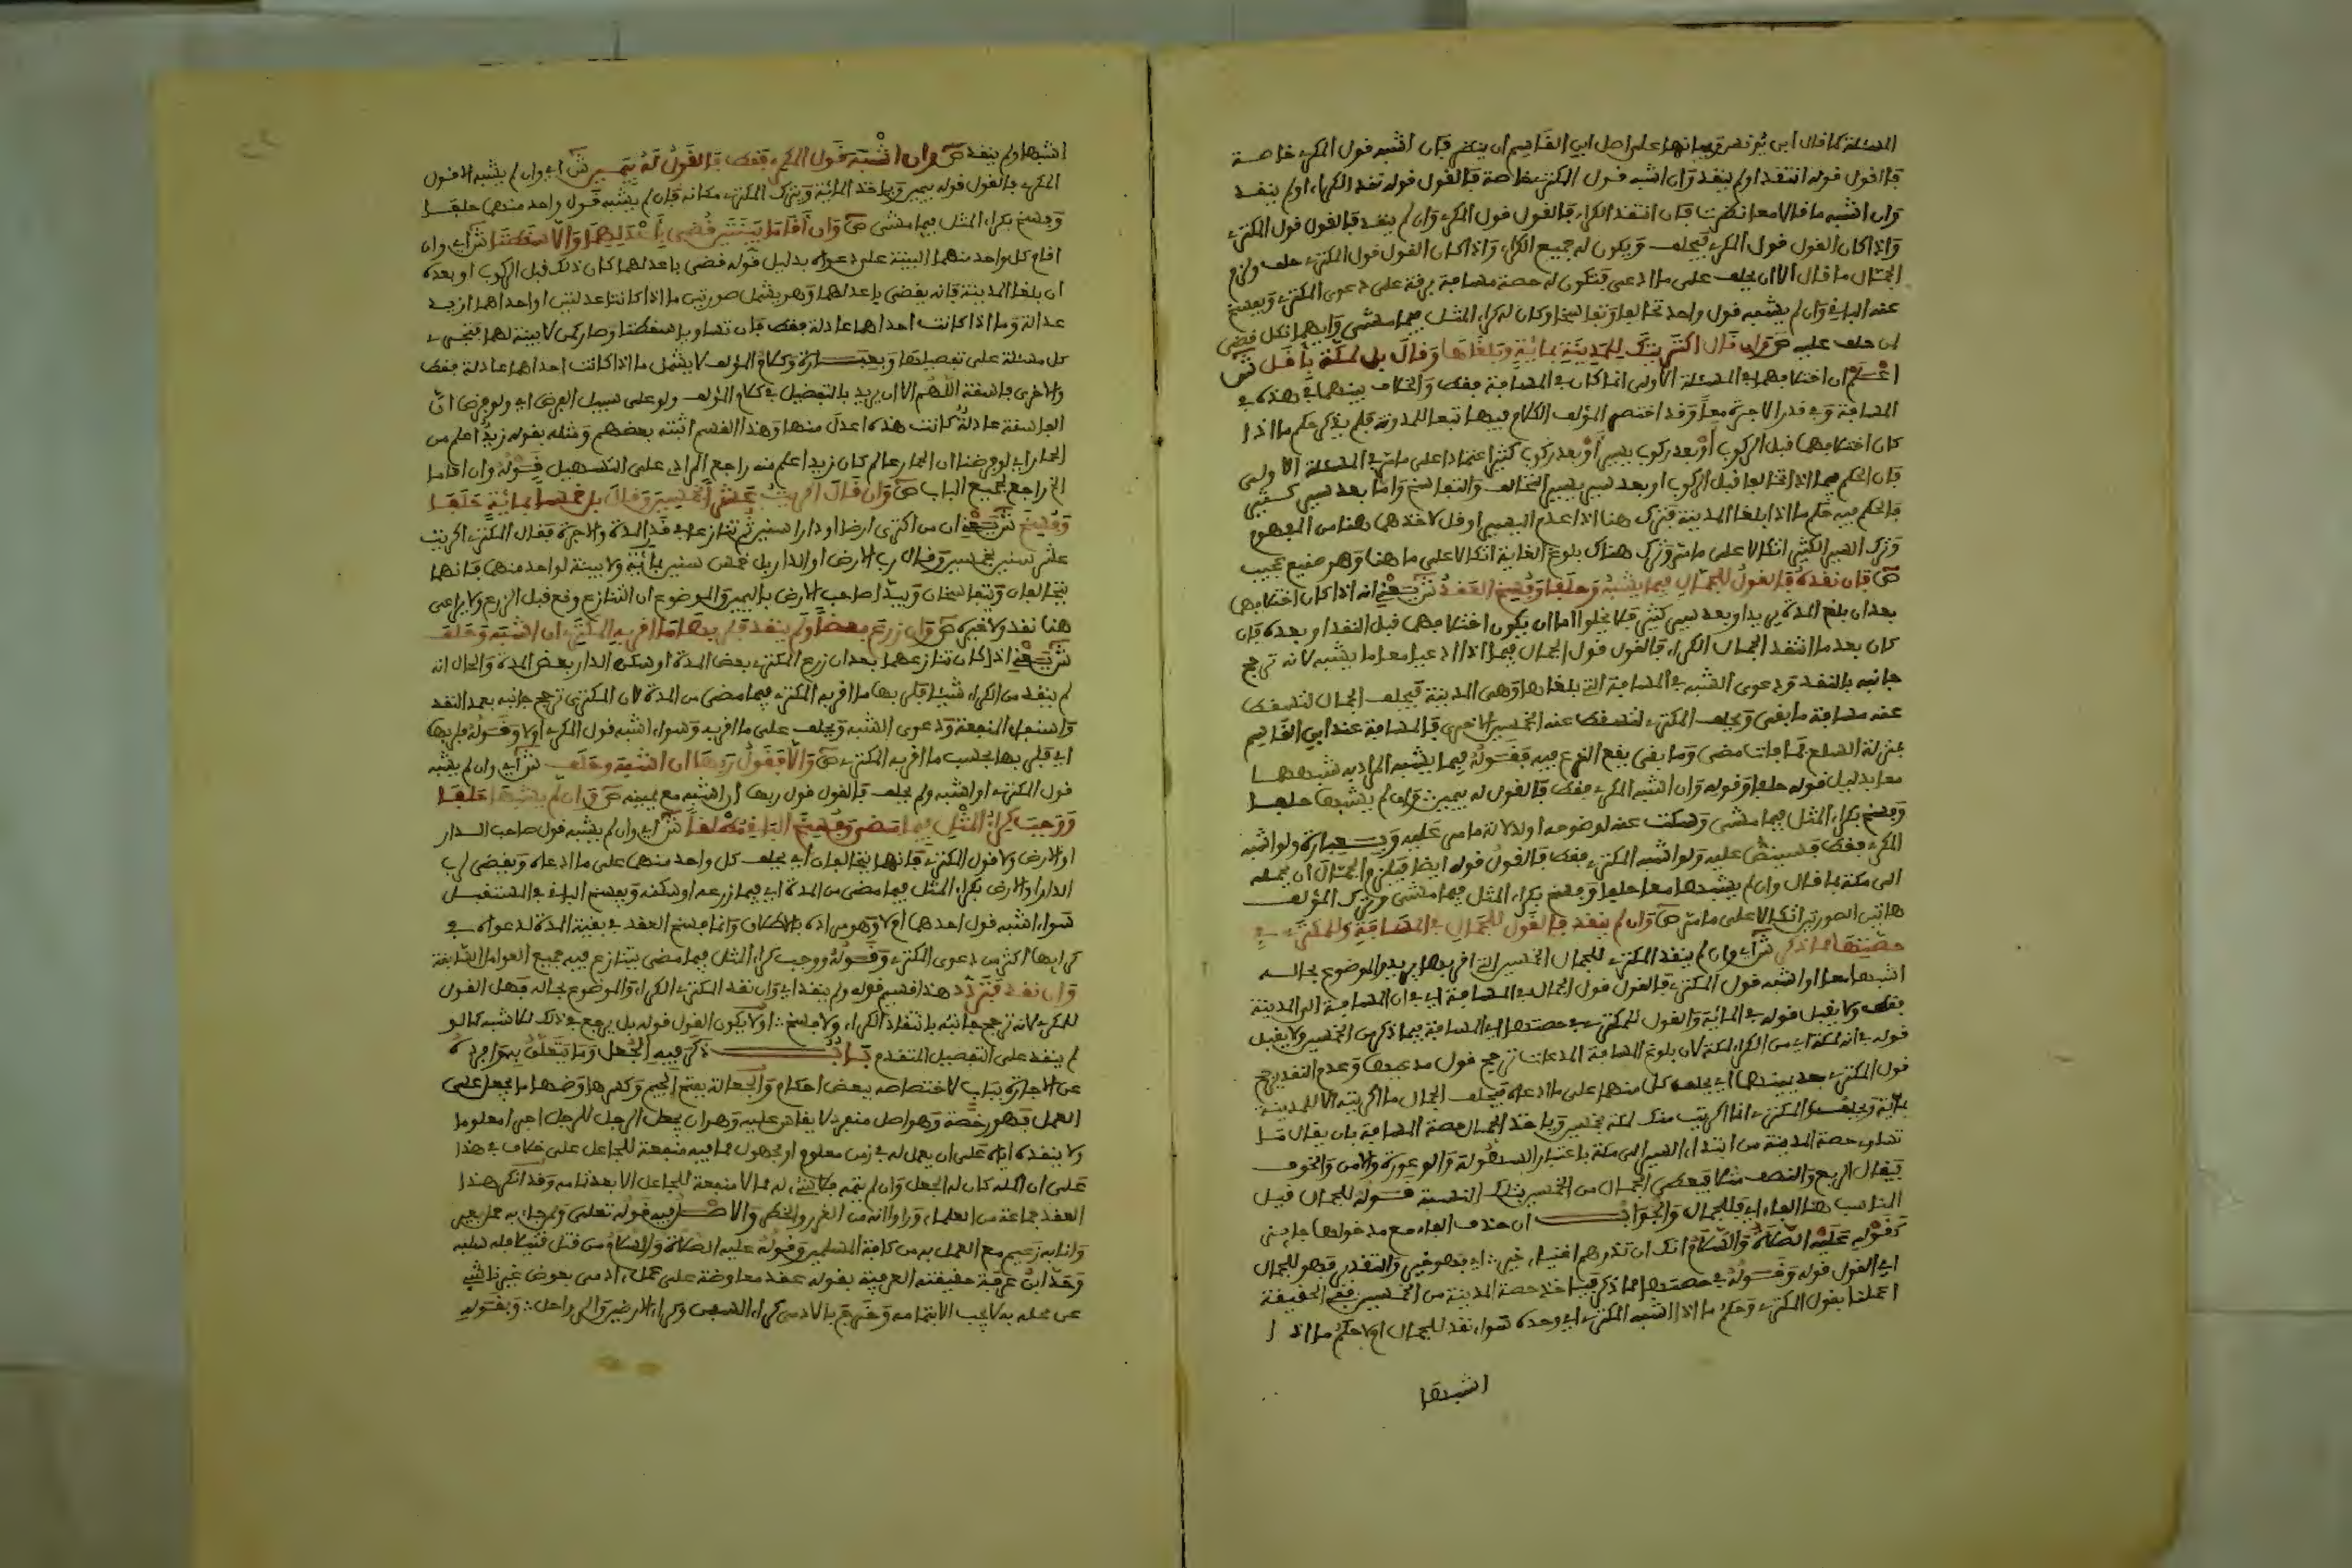 المسئلة كما قال ابن يونس وبيانها على اصل ابن القاسم ان ينظر فان اشبه قول المكري خاصة
فالقول قوله انتقد اولم ينقد وان اشبه قول المكتري خاصة فالقول قوله نقد الكراء اولم ينقد
وان اشبه ما قالا معا نظرت فان انتقد الكراء فالقول قول المكري وان لم ينقد فالقول قول المكتري
واذا كان القول قول المكري فيحلف ويكون له جميع الكراء واذا كان القول قول المكتري حلف ولزم
الجمال ما قال الا ان يحلف على ما ادعى فتكون له حصة مسافة برقة على دعوى المكتري ويفسخ
عنه الباقي وان لم يشبه قول واحد تحالفا وتفاسخا وكان له كراء المثل فيما مشى وايهما نكل قضي
لمن حلف عليه ص وان قال اكتريتك للمدينة بمائة وبلغاها وقال بل لمكة باقل ش
اعلم ان اختلافهما في المسئلة الاولى انما كان في المسافة فقط والخلاف بينهما في هذه في
المسافة وفي قدر الاجرة معا وقد اختصر المؤلف الكلام فيها تبعا للمدونة فلم يذكر حكم ما اذا
كان اختلافهما قبل الركوب او بعد ركوب يسير او بعد ركوب كثير اعتمادا على ما مر في المسئلة الاولى
فان الحكم فيما اذا اختلفا قبل الركوب او بعد سير يسير التحالف والتفاسخ واما بعد سير كثير
فالحكم فيه حكم ما اذا بلغا المدينة فترك هنا اذا عدم اليسير او قل لاخذهما هنا من المفهوم
وترك السير الكثير اتكالا على ما مر وترك هناك بلوغ الغاية اتكالا على ما هنا وهو صنيع عجيب
ص فان نقده فالقول للجمال فيما يشبه وحلفا وفسخ العقد ش يعني انه اذا كان اختلافهما
بعد ان بلغ المدينة يريد او بعد سير كثير فلا يخلوا اما ان يكون اختلافهما قبل النقد او بعده فان
كان بعد ما انتقد الجمال الكراء فالقول قول الجمال فيما اذا ادعيا معا ما يشبه لانه ترجح
جانبه بالنقد ودعوى الشبه في المسافة التي بلغاها وهي المدينة فيحلف الجمال لتسقط
عنه مسافة ما بقي ويحلف المكتري لتسقط عنه الخمسين الاخرى فالمسافة عند ابن القاسم
بمنزلة السلع فما فات مضى وما بقي يقع الفسخ فيه فقوله فيما يشبه المراد به شبههما
معا بدليل قوله حلفا وقوله وان اشبه المكري فقط فالقول له بيمين وان لم يشبها حلفا
وفسخ بكراء المثل فيما مشى وسكت عنه لوضوحه او دلالة ما مر عليه وبعبارة ولو اشبه
المكري فقط فسينص عليه ولو اشبه المكتري فقط فالقول قوله ايضا فيلزم الجمال ان يحمله
الى مكة بما قال وان لم يشبها معا حلفا وفسخ بكراء المثل فيما مشى وترك المؤلف
هاتين الصورتين اتكالا على ما مر ص وان لم ينقد فالقول للجمال في المسافة وللمكتري في
حصتها مما ذكر ش اي وان لم ينقد المكتري للجمال الخمسين التي اقر بها يريد والموضوع بحاله
اشبها معا او اشبه قول المكتري فالقول قول الجمال في المسافة اي في ان المسافة الى المدينة
فقط ولا يقبل قوله في المائة والقول للمكتري في حصتها اي المسافة فيما ذكر من الخمسين ولا يقبل
قوله في انه لمكة اي من الكراء لمكة لان بلوغ المسافة المدعات ترجح قول مدعيها وعدم النقد يرجح
قول المكتري بعد يمينهما اي يحلف كل منهما على ما ادعاه فيحلف الجمال ما اكريته الا للمدينة
بمائة ويحلف المكتري انما اكتريت منك لمكة بخمسين وياخذ الجمال حصة المسافة بان يقال ما
تساوي حصة المدينة من ابتداء السير الى مكة باعتبار السهولة والوعورة والامن والخوف
فيقال الربع والنصف مثلا فيعطى الجمال من الخمسين بتلك النسبة قوله للجمال قيل
المناسب هنا الفاء اي فللجمال والجواب ان حذف الفاء مع مدخولها جايز
كقوله عليه الصلاة والسلام انك ان تذر ورثتك اغنياء خير اي فهو خير والتقدير فهو للجمال
اي القول قوله وقوله في حصتها مما ذكر فياخذ حصة المدينة من الخمسين ففي الحقيقة
اعملنا بقول المكتري وحكم ما اذا اشبه المكتري اي وحده سواء نقد للجمال ام لا حكم ما اذا
اشبها
اشبها ولم ينقد ص وان اشبه قول المكري فقط فالقول له بيمين ش اي وان لم يشبه الا قول
المكري فالقول قوله بيمين وياخذ المائة ويترك المكتري مكانه فان لم يشبه قول واحد منهما حلفا
وفسخ بكراء المثل فيما مشى ص وان اقاما بينتين قضي باعدلهما والا سقطتا ش اي وان
اقام كل واحد منهما البينة على دعواه بدليل قوله قضي باعدلهما كان ذلك قبل الركوب او بعده
ان بلغا المدينة فانه يقضى باعدلهما وهو يشمل صورتين ما اذا كانتا عدلتين او احداهما ازيد
عدالة وما اذا كانت احداهما عادلة فقط فان تساويا سقطتا وصارا كمن لا بينة لهما فتجري
كل مسئلة على تفصيلها وبعبارة وكلام المؤلف لا يشمل ما اذا كانت احداهما عادلة فقط
والاخرى فاسقة اللهم الا ان يريد بالتفضيل في كلام المؤلف ولو على سبيل الفرض اي ولو فرض ان
الفاسقة عادلة كانت هذه اعدل منها وهذا القسم اثبته بعضهم ومثله بقوله زيد اعلم من
الحمار اي لو فرضنا ان الحمار عالم كان زيد اعلم منه راجع المرادي على التسهيل قوله وان اقاما
الخ راجع لجميع الباب ص وان قال اكتريت عشرا بخمسين وقال بل خمسا بمائة حلفا
وفسخ ش يعني ان من اكترى ارضا او دارا سنين ثم تنازعا في قدر المدة والاجرة فقال المكتري اكتريت
عشر سنين بخمسين وقال رب الارض او الدار بل خمس سنين بمائة ولا بينة لواحد منهما فانهما
يتحالفان ويتفاسخان ويبدا صاحب الارض باليمين والموضوع ان التنازع وقع قبل الزرع ولا يراعى
هنا نقد ولا غيره ص وان زرع بعضا ولم ينقد فلربها ما اقر به المكتري ان اشبه وحلف
ش يعني اذا كان تنازعهما بعد ان زرع المكتري بعض المدة او سكن الدار بعض المدة والحال انه
لم ينقد من الكراء شيئا فلربها ما اقر به المكتري فيما مضى من المدة لان المكتري ترجح جانبه بعدم النقد
واستيفاء المنفعة ودعوى الشبه ويحلف على ما اقر به وسواء اشبه قول المكري اولا وقوله فلربها
اي فلربها بحسب ما اقر به المكتري ص والا فقول ربها ان اشبه وحلف ش اي وان لم يشبه
قول المكتري او اشبه ولم يحلف فالقول قول ربها ان اشبه مع يمينه ص وان لم يشبها حلفا
ووجب كراء المثل فيما مضى وفسخ الباقي مطلقا ش اي وان لم يشبه قول صاحب الدار
او الارض ولا قول المكتري فانهما يتحالفان اي يحلف كل واحد منهما على ما ادعاه ويقضى لرب
الدار او الارض بكراء المثل فيما مضى من المدة اي فيما زرعه او سكنه ويفسخ الباقي في المستقبل
سواء اشبه قول احدهما ام لا وهو مراده بالاطلاق وانما فسخ العقد في بقية المدة لدعواه في
كرايها اكثر من دعوى المكتري وقوله ووجب كراء المثل فيما مضى يتنازع فيه جميع العوامل السابقة
وان نقد فتردد هذا قسيم قوله ولم ينقد اي وان نقد المكتري الكراء والموضوع بحاله فهل القول
للمكري لانه ترجح جانبه بانتقاد الكراء ولا فسخ او لا يكون القول قوله بل يرجع في ذلك للاشبه كما لو
لم ينقد على التفصيل المتقدم باب ذكر فيه الجعل وما يتعلق به وافرده
عن الاجارة بباب لاختصاصه ببعض احكام والجعالة بفتح الجيم وكسرها وضمها ما يجعل على
العمل فهو رخصة وهو اصل منفرد لا يقاس عليه وهو ان يجعل الرجل للرجل اجرا معلوما
ولا ينقده اياه على ان يعمل له في زمن معلوم او مجهول مما فيه منفعة للجاعل على خلاف في هذا
على ان اكمله كان له الجعل وان لم يتمه فلا شيء له مما لا منفعة للجاعل الا بعد تمامه وقد انكر هذا
العقد جماعة من العلماء وراوا انه من الغرر والخطر والاصل فيه قوله تعلى ولمن جاء به حمل بعير
وانا به زعيم مع العمل به من كافة المسلمين وقوله عليه الصلاة والسلام من قتل قتيلا فله سلبه
وحد ابن عرفة حقيقته العرفية بقوله عقد معاوضة على عمل ادمي بعوض غير ناشئ
عن محله به لا يجب الا بتمامه وخرج بالادمي كراء السفن وكراء الارضين والرواحل وبقوله